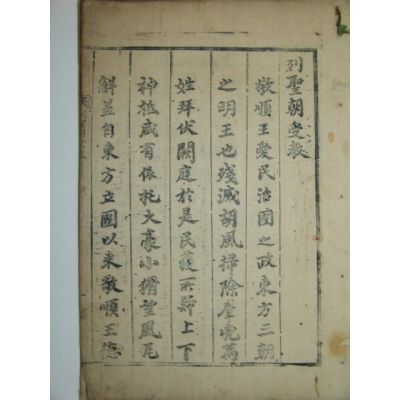 列聖朝受教
敬順王愛民治國之政東方二朝
之明王也殘滅胡風掃除羣兇萬
姓拜伏闕庭於是民獲所歸上下
神祇咸有依托大豪小猾望風瓦
解盖自東方立國以来敬順王德